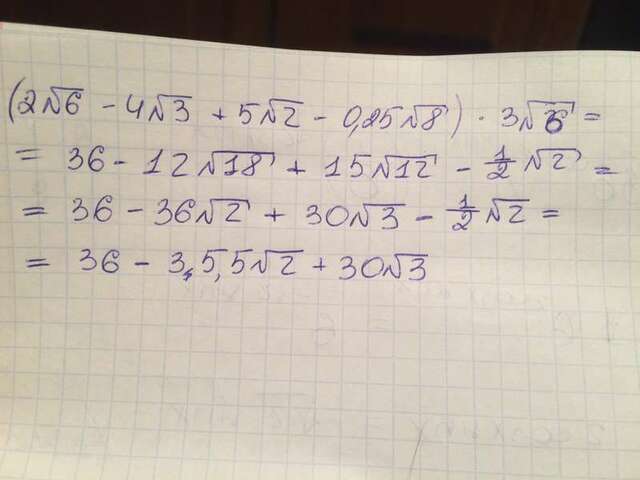 (2√6 - 4√3 + 5√2 - 0,25√8) · 3√6 =
= 36 - 12√18 + 15√12 - 1/2 √2 =
= 36 - 36√2 + 30√3 - 1/2 √2 =
= 36 - 3,5,5√2 + 30√3